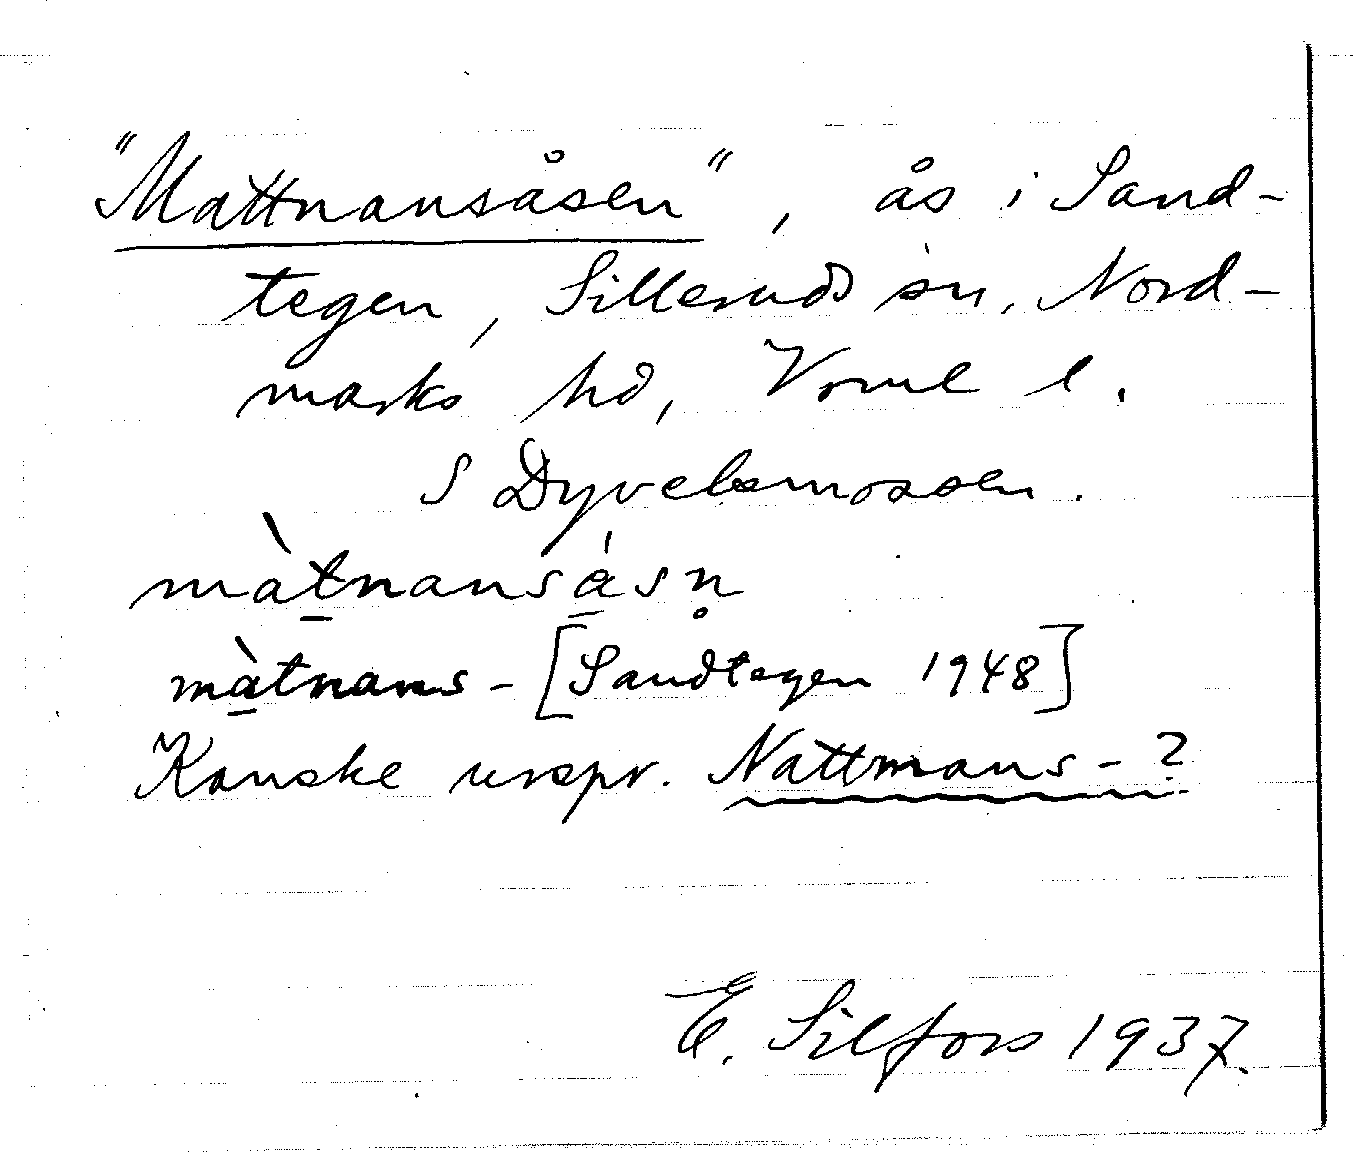 "Mattnansåsen", ås i Sand-
tegen, Silleruds sn, Nord-
marks hd, Vrml l.
S Dyvelsmossen.
màt̲nansá̲sn̥
mà̲tnans- [Sandtegen 1948]
Kanske urspr. Nattmans-?
E. Silfors 1937.